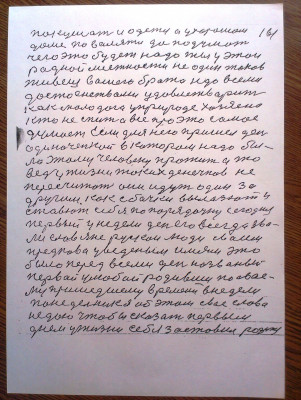 покушат и одети а ухороном 161
доме поваляти да подумат
чего это будет надо жи у этой
родной местности не один таков
живеш вашего брата надо всеми
достоенствами удовлетварит
как молодога у природе хозяена
кто не считаеи про это самое
думает Если для него пришел ден
одиноченкой в котором надо бы-
ло этому человеку прожит а это
вед у жизни таких денечков не
пересчитат они идут один за
другим как собачки вылазят у
ставют себя по порядочку сегодня
первый у недели ден его всегда зва-
ли славяне руские люди своего
предкова уведеным имям это
было перед всеми ден названы
первай у любой родивши по свое-
му пришедшему времени в недели
понедельника об этом свае слова
недою чтобы сказат первым
днем у жизни себя заставил родит